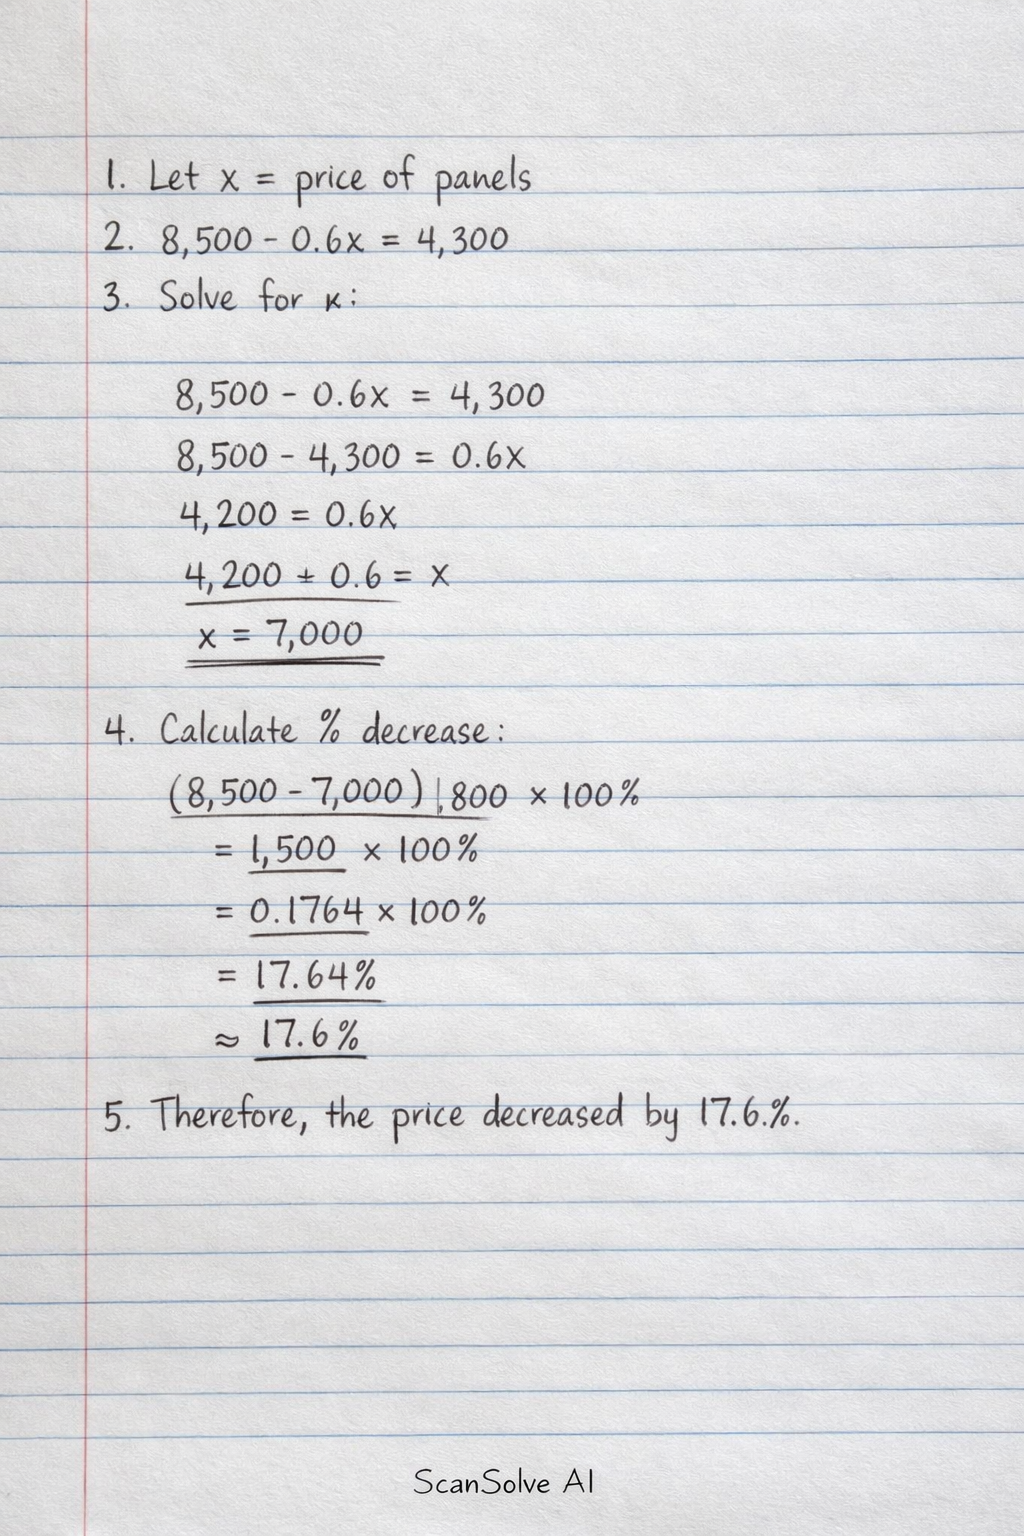 1. Let x = price of panels
2. 8,500 - 0.6x = 4,300
3. Solve for x:
8,500 - 0.6x = 4,300
8,500 - 4,300 = 0.6x
4,200 = 0.6x
4,200 ÷ 0.6 = x
x = 7,000
4. Calculate % decrease:
(8,500 - 7,000) |,800 × 100%
= 1,500 × 100%
= 0.1764 × 100%
= 17.64%
≈ 17.6%
5. Therefore, the price decreased by 17.6.%.
ScanSolve AI